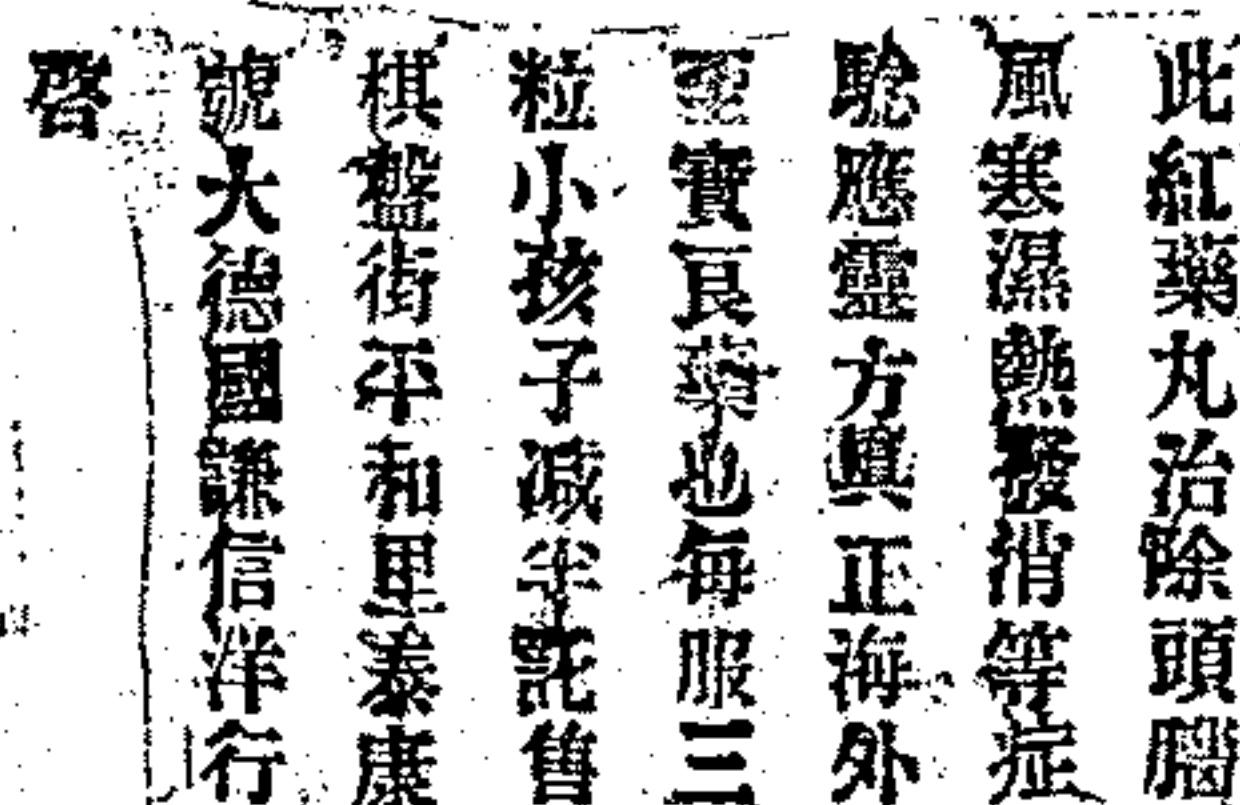 此紅藥丸治除頭腦
風寒濕熱發消等症
騐應靈方眞正海外
至寶良藥也每服三
粒小孩子减半託售
棋盤街平和里泰康
號大德國謙信洋行
啓